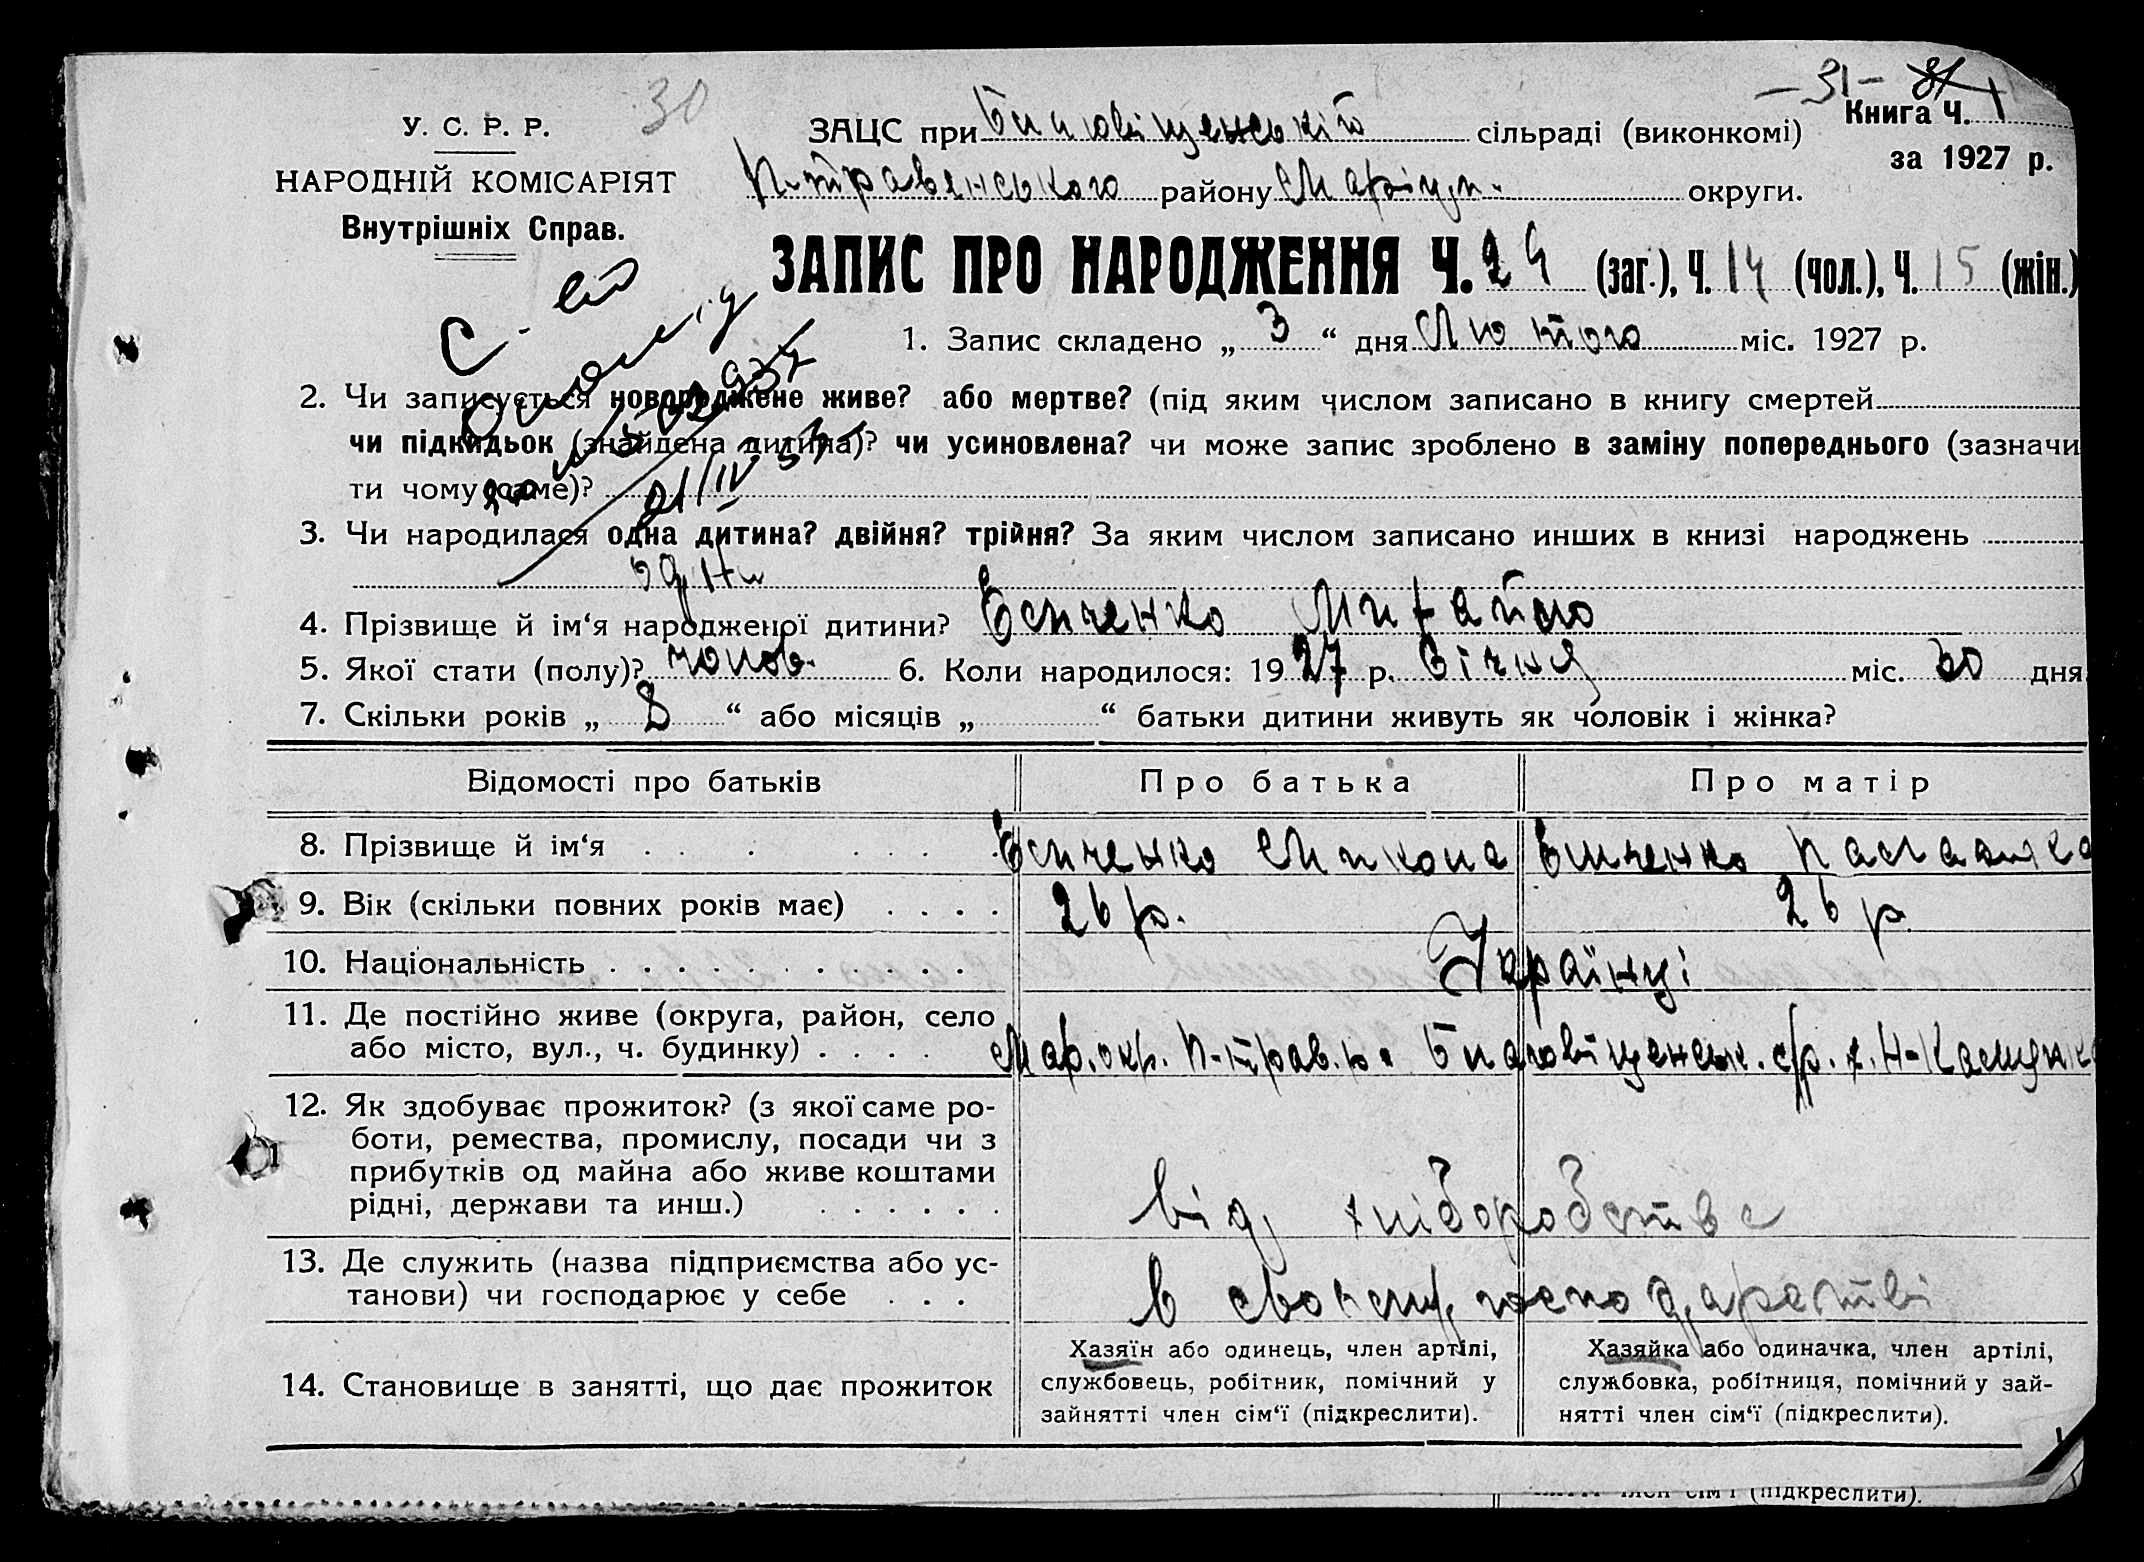 30
—31— 31
У. С. Р. Р.
НАРОДНІЙ КОМІСАРІЯТ
Внутрішніх Справ.
ЗАЦС при Благовіщенській сільраді (виконкомі)
Книга Ч. 1
за 1927 р.
П-травенського району Маріуп. округи.
ЗАПИС ПРО НАРОДЖЕННЯ Ч. 29 (заг.), Ч. 14 (чол.), Ч. 15 (жін.)
1. Запис складено „ 3 “ дня Лютого міс. 1927 р.
2. Чи записується новороджене живе? або мертве? (під яким числом записано в книгу смертей
чи підкидьок (знайдена дитина)? чи усиновлена? чи може запис зроблено в заміну попереднього (зазначи
ти чому саме)?
21/IV 37
3. Чи народилася одна дитина? двійня? трійня? За яким числом записано инших в книзі народжень
одна
4. Прізвище й ім‘я народженої дитини? Єсипенко Михайло
5. Якої стати (полу)? чолов. 6. Коли народилося: 1927 р. Січня міс. 30 дня
7. Скільки років „ 8 “ або місяців „ “ батьки дитини живуть як чоловік і жінка?
Відомості про батьків Про батька Про матір
8. Прізвище й ім‘я Микола
9. Вік (скільки повних років має) 26 р. 26 р.
10. Національність Українці
11. Де постійно живе (округа, район, село
або місто, вул., ч. будинку) Мар. окр. П-трав. р. Благовіщенськ. с/р. х. Н-
12. Як здобуває прожиток? (з якої саме ро-
боти, ремества, промислу, посади чи з
прибутків од майна або живе коштами
рідні, держави та инш.) від хліборобства
13. Де служить (назва підприємства або ус-
танови) чи господарює у себе в своєму господарстві
14. Становище в занятті, що дає прожиток
Хазяїн або одинець, член артілі,
службовець, робітник, помічний у
зайнятті член сім‘ї (підкреслити).
Хазяйка або одиначка, член артілі,
службовка, робітниця, помічний у зай-
нятті член сім‘ї (підкреслити).
член сім‘ї (підкреслити).